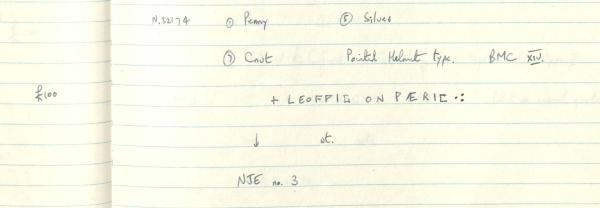 N.32174 ① Penny ⑤ Silver
⑦ Cnut Pointed Helmet type. BMC XIV.
£100
+ LEOFPIC ON PÆRIC .:
↓ st.
NJE no. 3